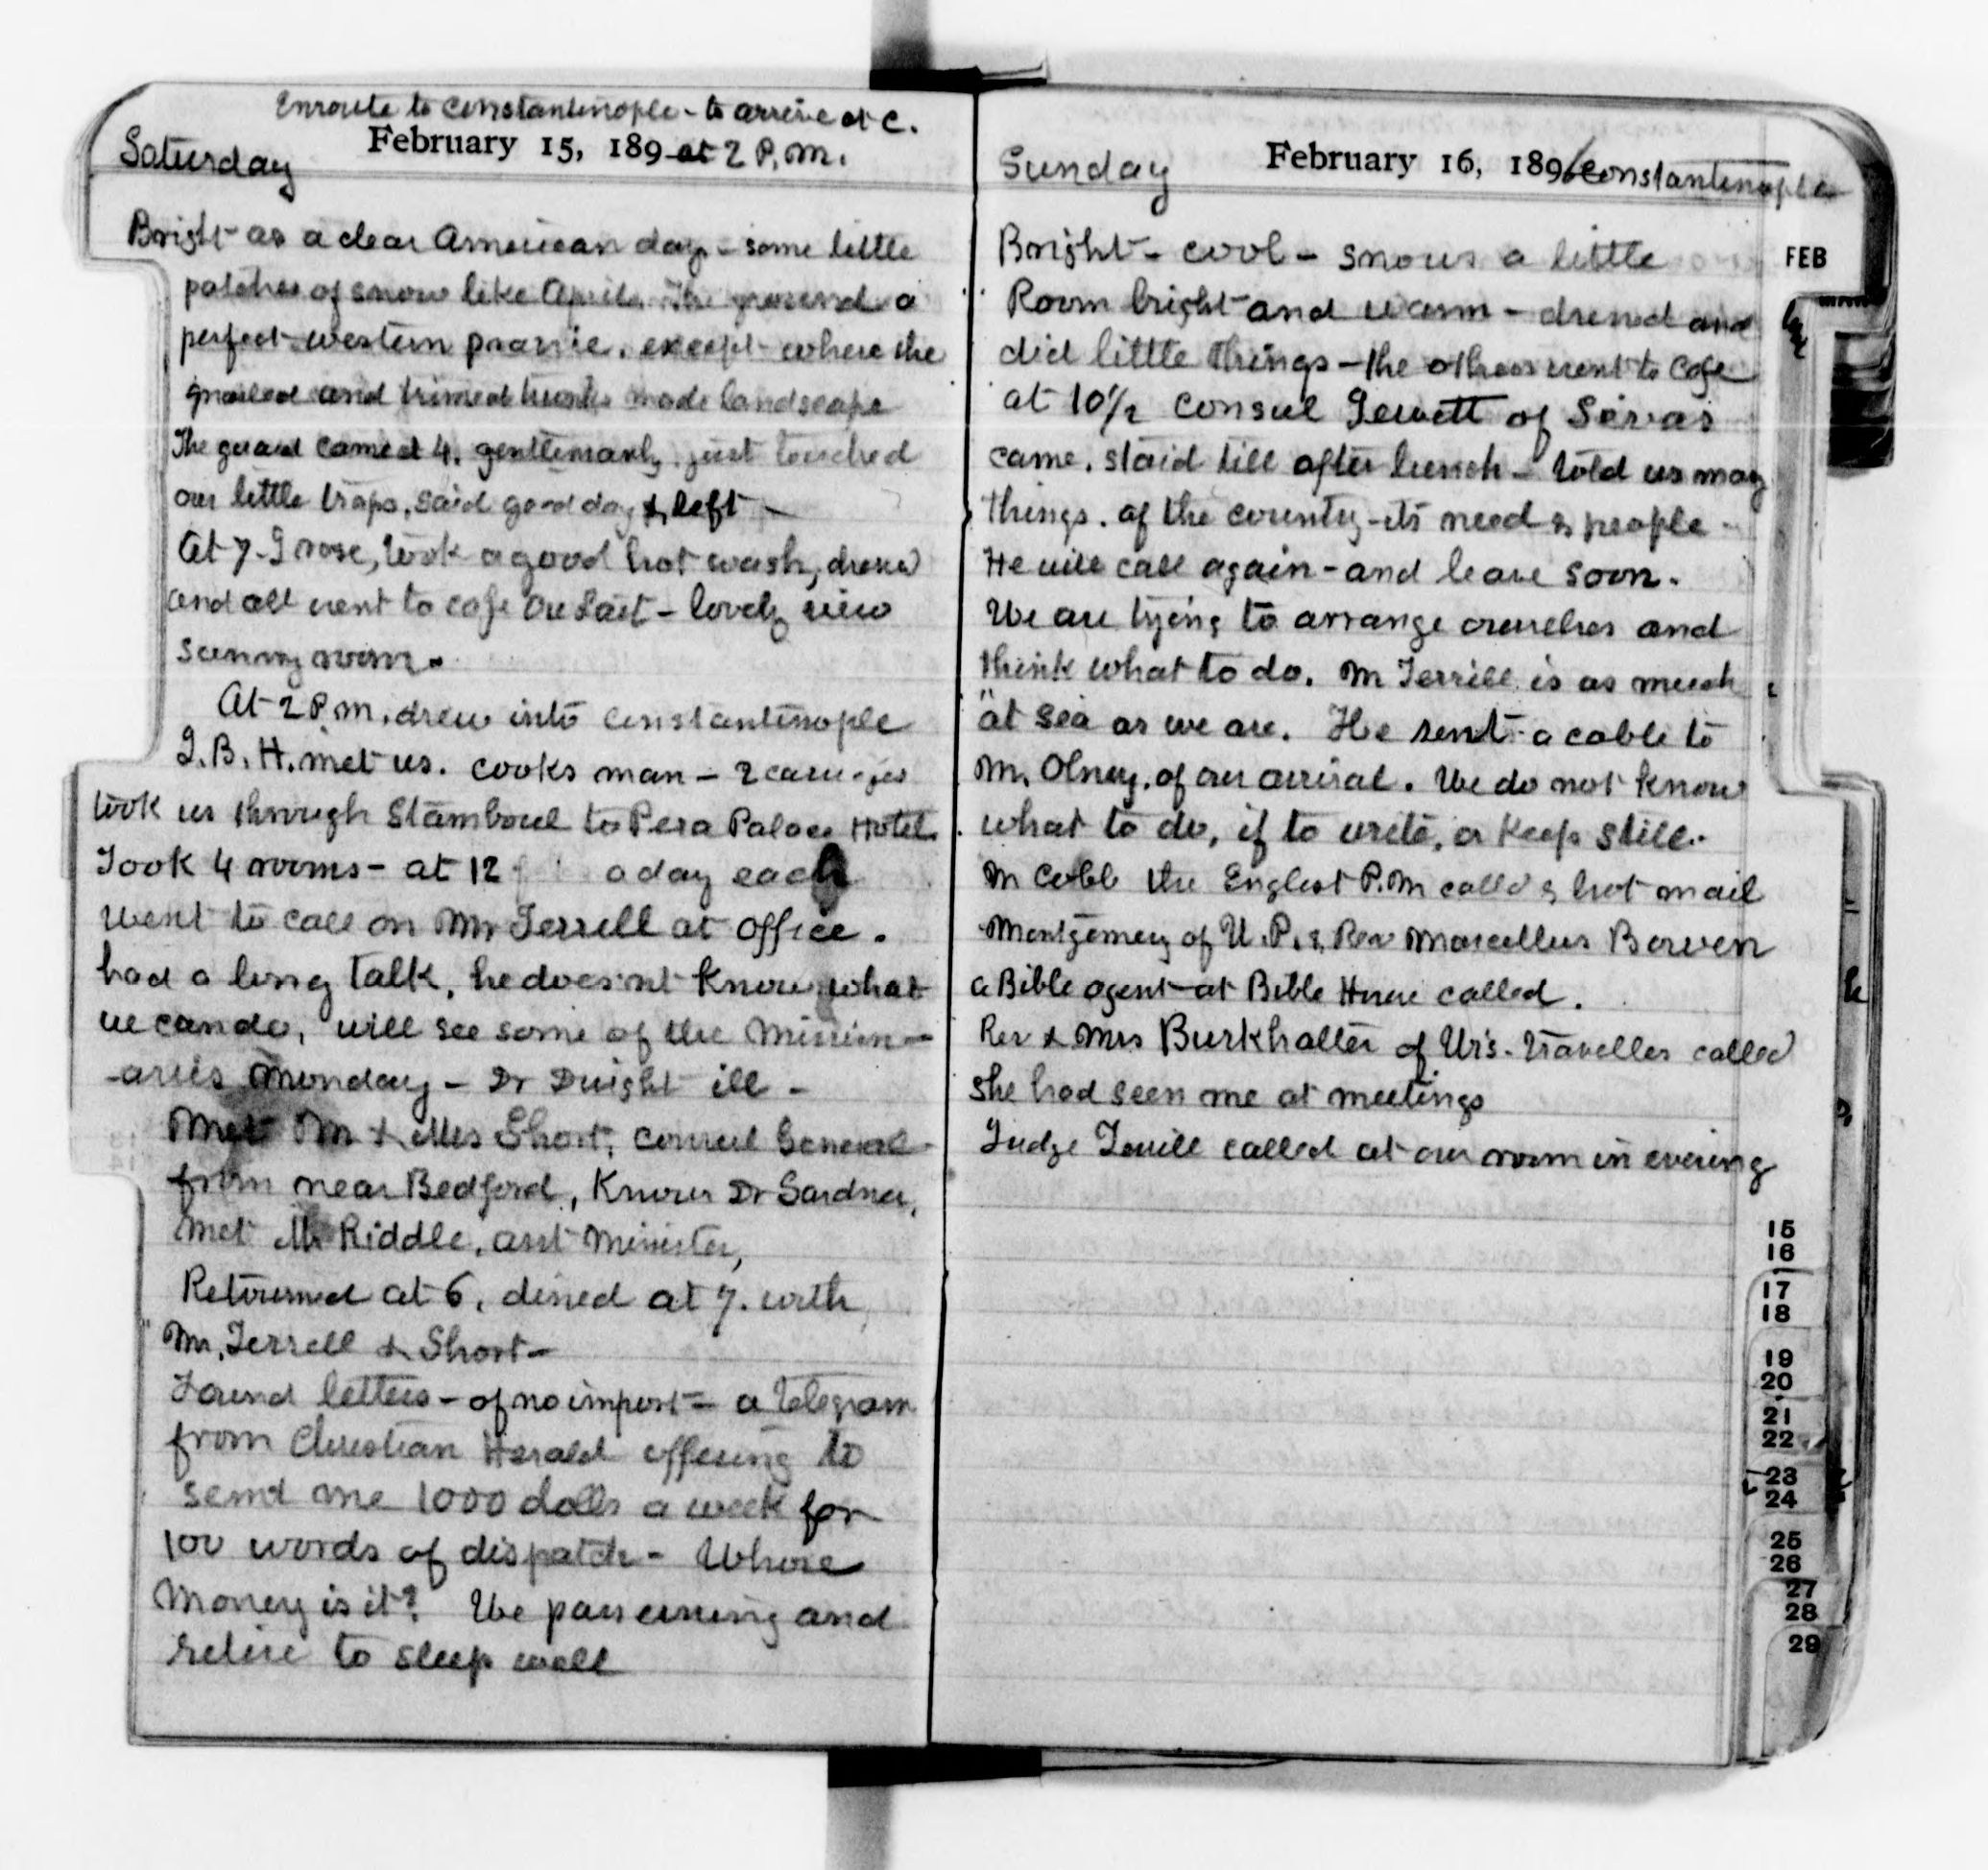 Enroute to Constantinople - to arrive at C.
Saturday February 15, 189 at 2 P.M.
Bright as a clear American day - some little
patches of snow like April. The ground a
perfect western prairie, except where the
and trimed trunks made landscape
The guard came at 4. gentlemanly, just touched
our little traps, said good day & left -
At 7 - I rose, took a good hot wash, dressed
and all went to cafe Au Lait - lovely view
sunny room.
At 2 P.m. drew into Constantinople
I. B. H. met us. Cooks man - 2 carriages
took us through Stamboul to Pera Palace Hotel.
Took 4 rooms - at 12 a day each
went to call on Mr Terrell at office.
had a long talk, he does'nt know what
we can do, will see some of the Mission-
-aries Monday - Dr Dwight ill -
Met Mr & Mrs Short, Consul General
from near Bedford, Knows Dr Gardner,
Met Mr Riddle, asst Minister,
Returned at 6, dined at 7. with
Mr. Terrell & Short -
Found letters - of no import - a telegram
from Christian Herald offering to
send me 1000 dolls a week for
100 words of dispatch - Whose
Money is it? We pass evening and
retire to sleep well
Sunday February 16, 1896 Constantinople
Bright - cool - snows a little
Room bright and warm - dressed and
did little things - the others went to Cafe
at 10 1/2 Consul Jewett of Sivas
came, staid till after lunch - told us many
things. of the country - its need & people -
He will call again - and leave soon.
We are trying to arrange ourselves and
think what to do. Mr Terrill is as much
"at sea as we are. He sent a cable to
Mr. Olney, of our arrival. We do not know
what to do, if to write, or keep still.
Mr Cobb the English P.M called & hot mail
Montgomery of U. P. & Rev Marcellus Bowen
a Bible agent at Bible House called.
Rev & Mrs Burkhalter of travelles called
she had seen me at meetings
Judge Terrill called at our room in evening
FEB
15
16
17
18
19
20
21
22
23
24
25
26
27
28
29